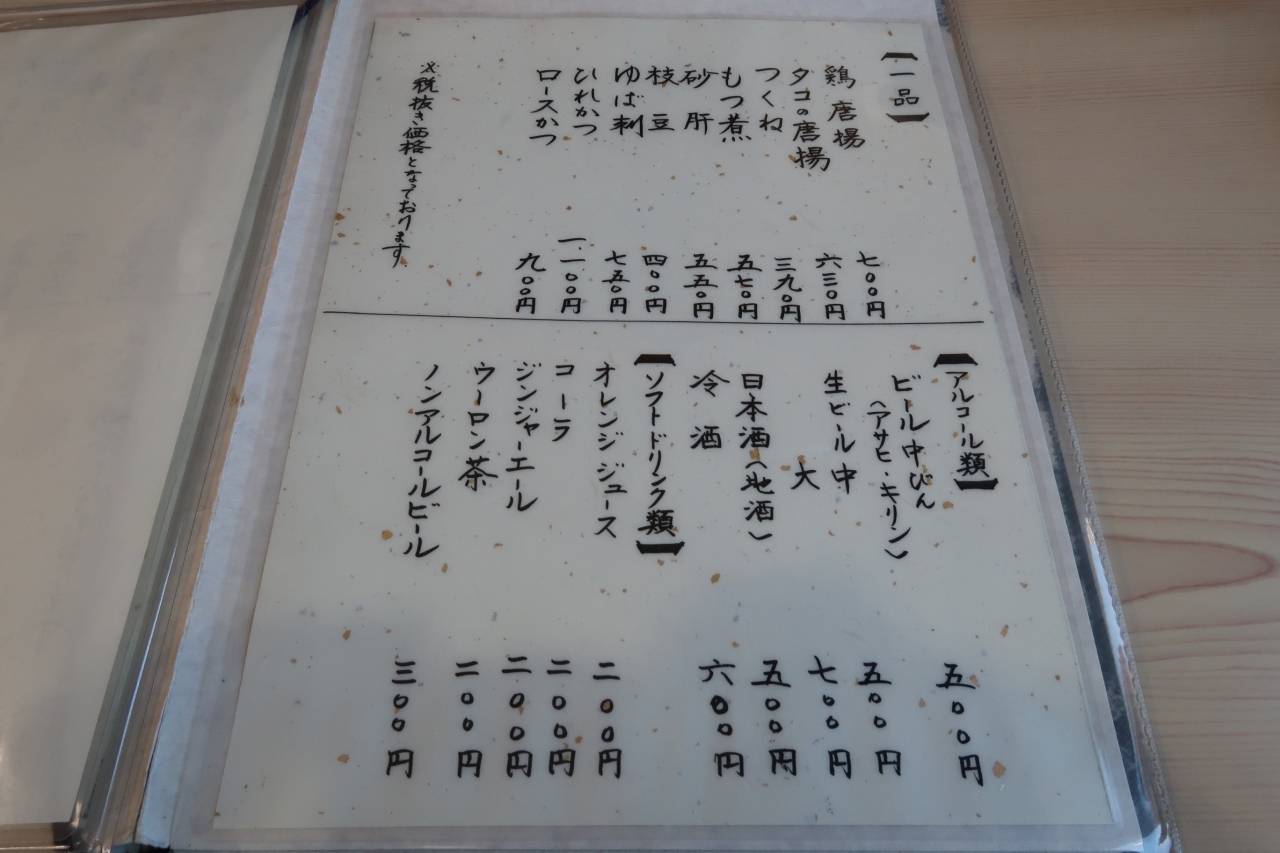 【一品】
鶏唐揚 七〇〇円
タコの唐揚 六三〇円
つくね 三九〇円
もつ煮 五七〇円
砂肝 五五〇円
枝豆 四〇〇円
ゆば刺 七五〇円
ひれかつ 一、一〇〇円
ロースかつ 九〇〇円
※税抜き価格となっております
【アルコール類】
ビール中びん 五〇〇円
（アサヒ・キリン）
生ビール中 五〇〇円
大 七〇〇円
日本酒（地酒） 五〇〇円
冷酒 六〇〇円
【ソフトドリンク類】
オレンジジュース 二〇〇円
コーラ 二〇〇円
ジンジャーエール 二〇〇円
ウーロン茶 二〇〇円
ノンアルコールビール 三〇〇円